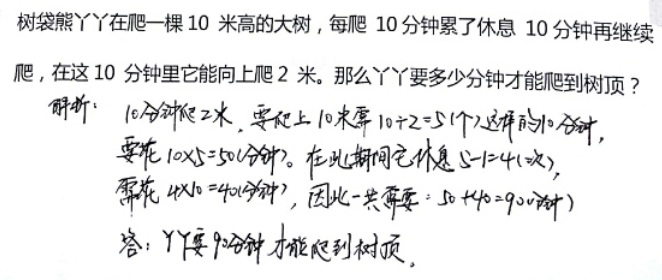 树袋熊丫丫在爬一棵 10 米高的大树，每爬 10 分钟累了休息 10 分钟再继续
爬，在这 10 分钟里它能向上爬 2 米。那么丫丫要多少分钟才能爬到树顶？
解析：10分钟爬2米，要爬上10米需10÷2=5(个)这样的10分钟，
要花10×5=50(分钟)。在此期间它休息5-1=4(次)，
需花4×10=40(分钟)，因此一共需要：50+40=90(分钟)
答：丫丫要90分钟才能爬到树顶。